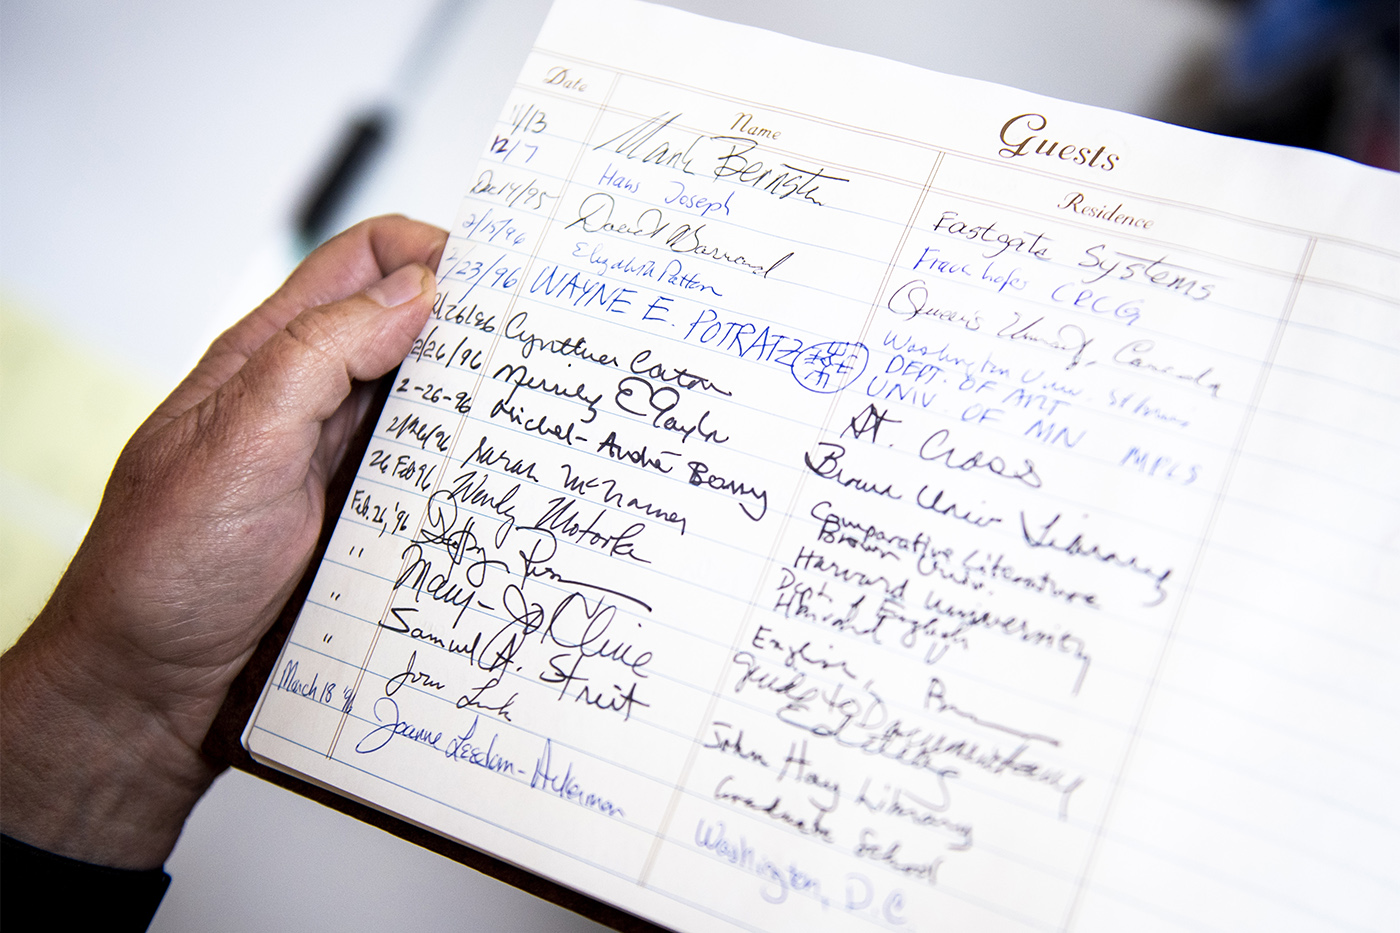 Guests
Date Name Residence
11/13 Mark Bernstein Eastgate Systems
12/7 Hans Joseph CRCG
Dec 14/95 David Barnard Queen's University, Canada
2/15/96 Elizabeth Patton Washington Univ. St Louis
2/23/96 WAYNE E. POTRATZ DEPT. OF ART
UNIV. OF MN MPLS
2/26/96 Cynthia Caton St. Cross
2/26/96 Merrily E Taylor Brown Univ Library
2-26-96 Michel-André Bossy Comparative Literature
Brown Univ.
2/26/96 Sarah McNamer Harvard University
26 Feb 96 Wendy Motooka Dept. of English
Harvard
Feb. 26, '96 English,
" Mary-Jo Kline Guide to Documentary
Editing
" Samuel A. Streit John Hay Library
" Joan Lusk Graduate School
March 18 '96 Joanne Leedom-Ackerman Washington, D.C